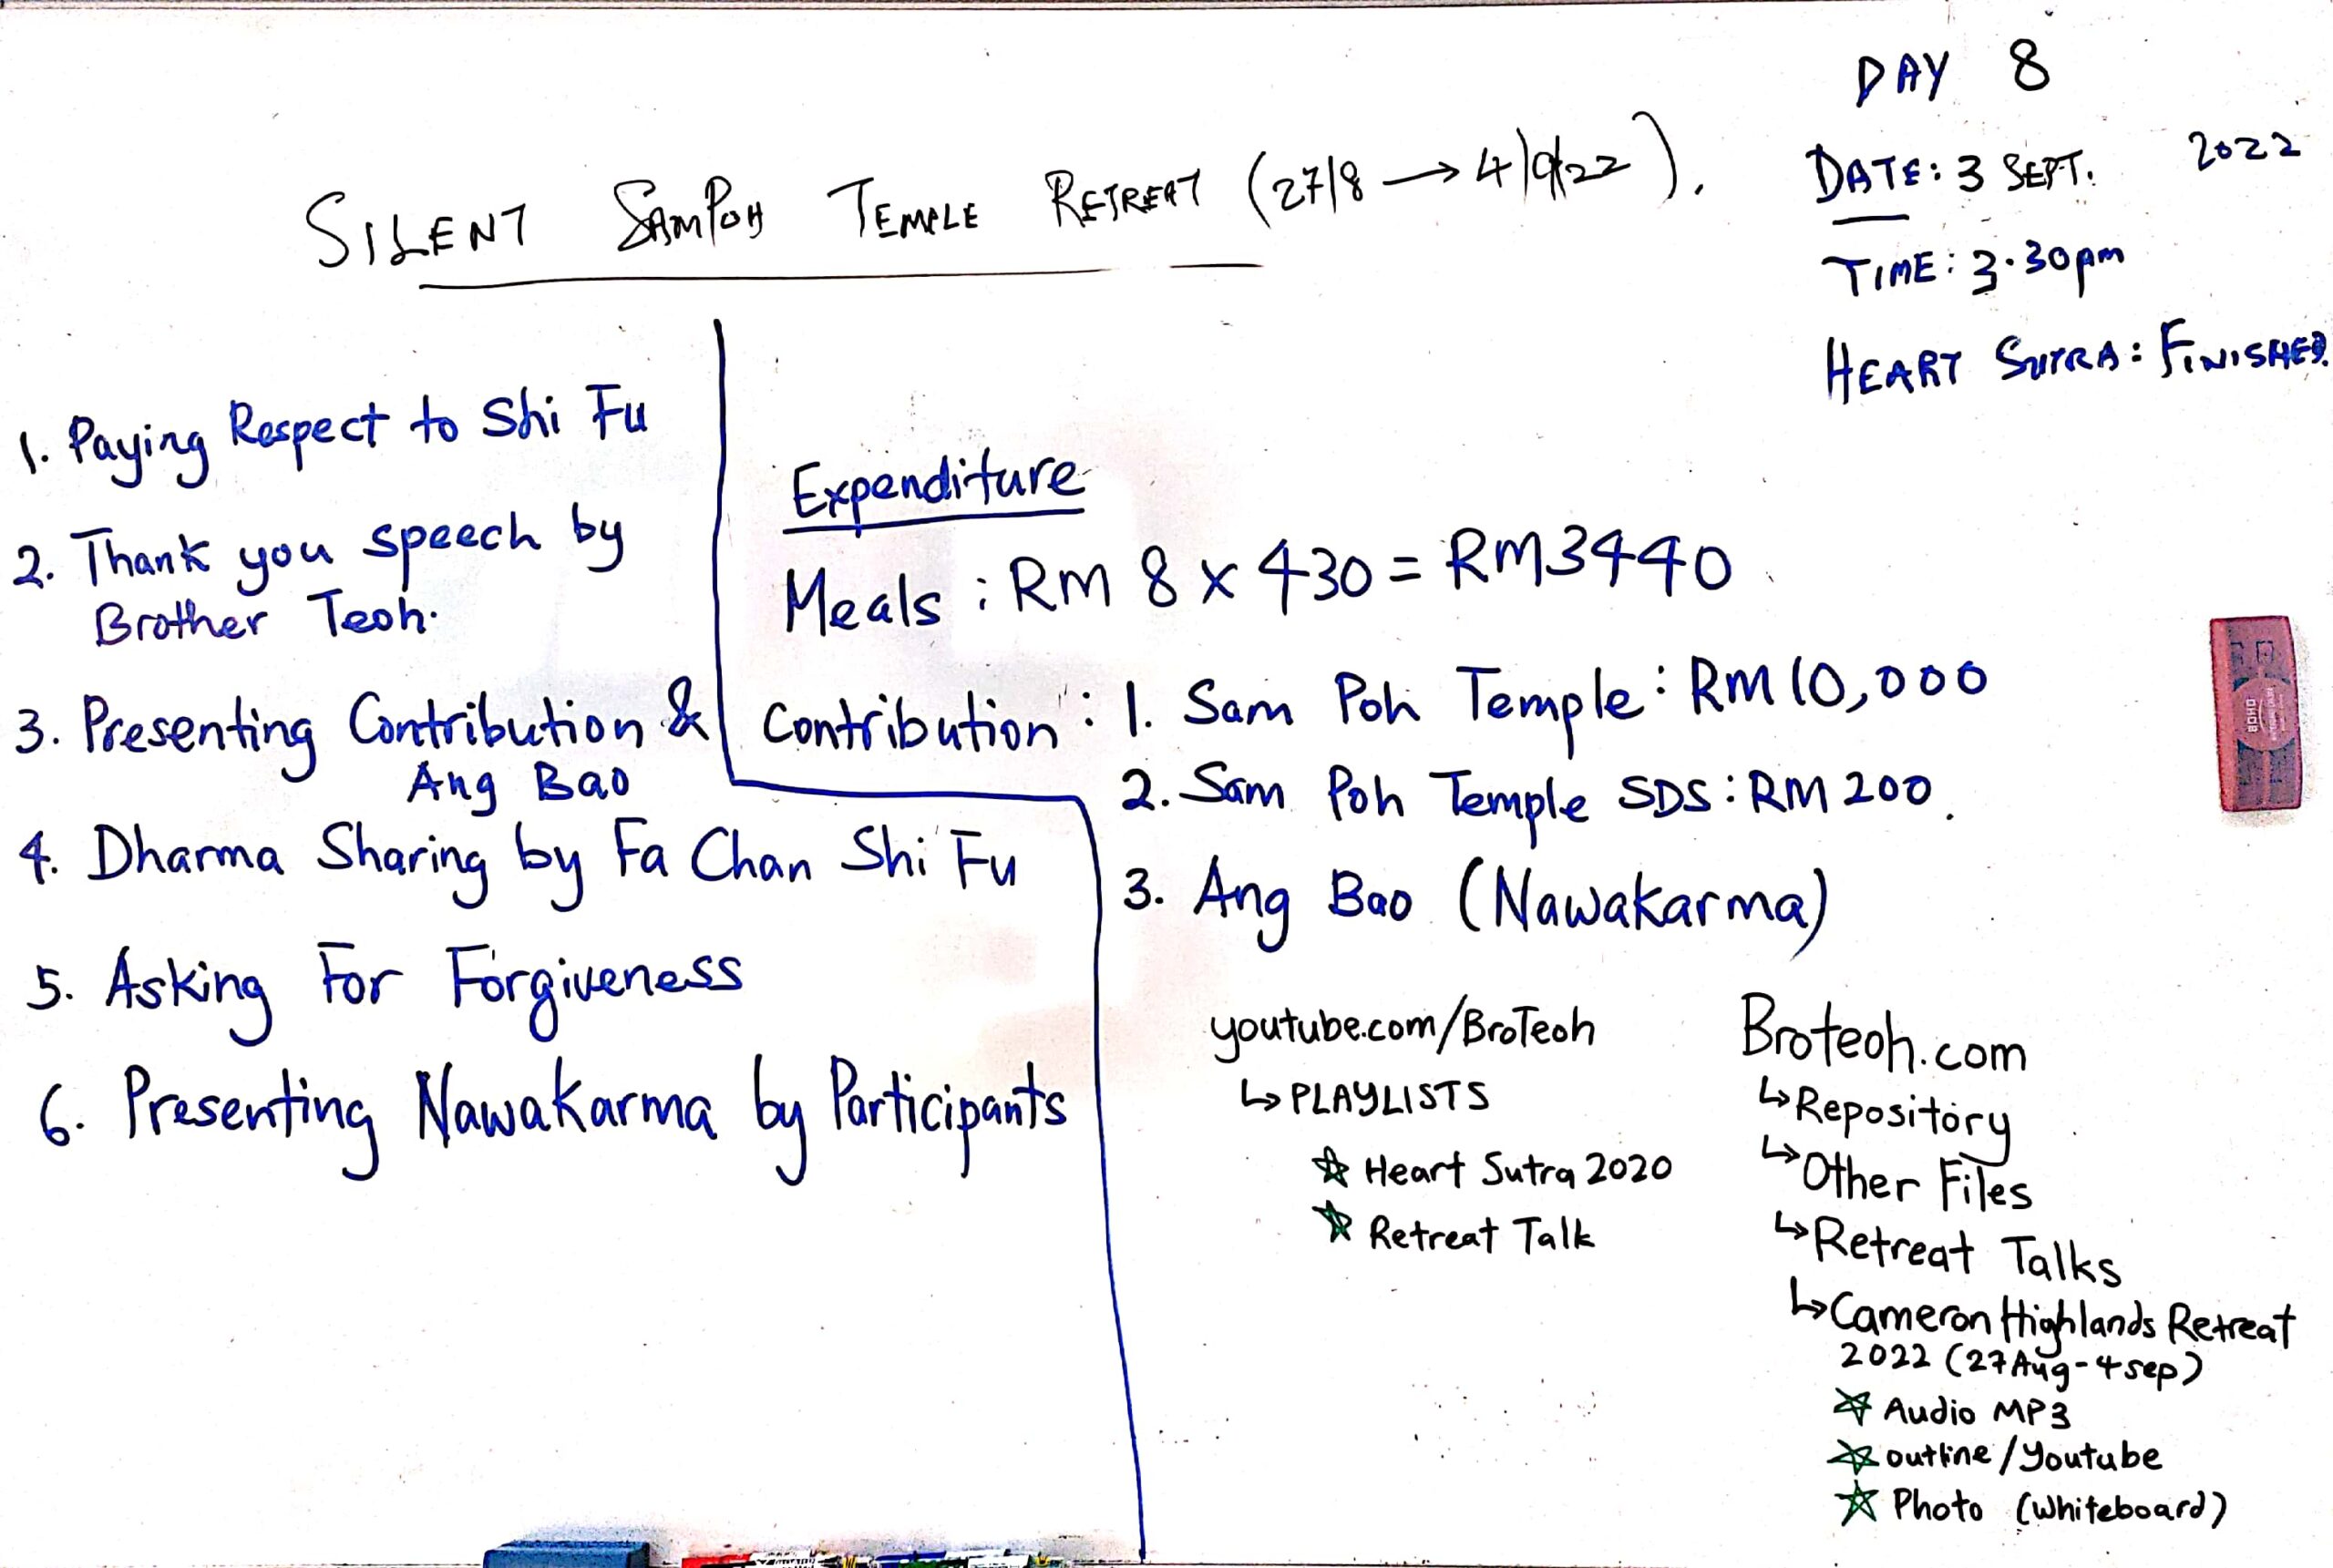 DAY 8
SILENT SAMPOH TEMPLE RETREAT (27/8 → 4/9/22).
DATE: 3 SEPT. 2022
TIME: 3.30pm
HEART SUTRA: FINISHED.
1. Paying Respect to Shi Fu
2. Thank you speech by
Brother Teoh.
3. Presenting Contribution &
Ang Bao
4. Dharma Sharing by Fa Chan Shi Fu
5. Asking For Forgiveness
6. Presenting Nawakarma by Participants
Expenditure
Meals : RM 8 x 430 = RM3440
Contribution : 1. Sam Poh Temple : RM10,000
2. Sam Poh Temple SDS : RM 200.
3. Ang Bao (Nawakarma)
youtube.com/BroTeoh
↳ PLAYLISTS
☆ Heart Sutra 2020
☆ Retreat Talk
Broteoh.com
↳ Repository
↳ Other Files
↳ Retreat Talks
↳ Cameron Highlands Retreat
2022 (27Aug-4sep)
☆ Audio MP3
☆ outline/Youtube
☆ Photo (whiteboard)